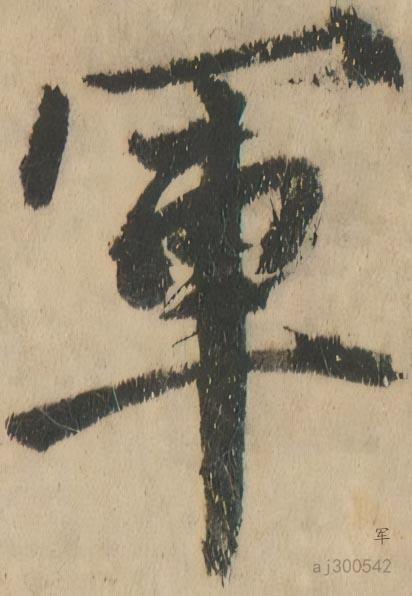 軍
军
aj300542